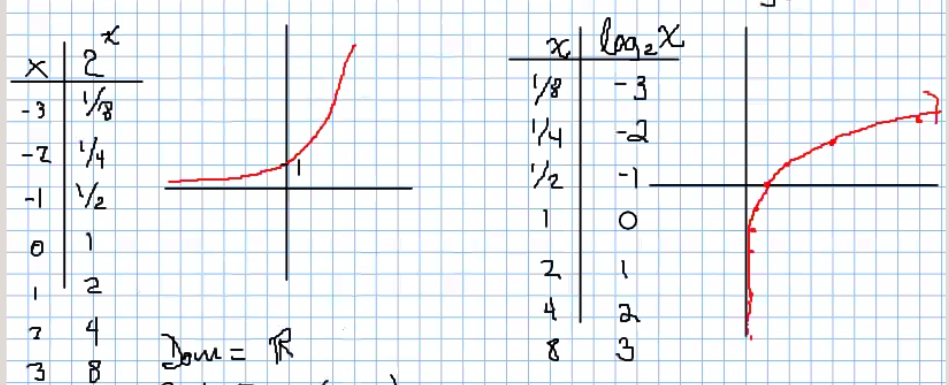 x | 2^x
-3 | 1/8
-2 | 1/4
-1 | 1/2
0 | 1
1 | 2
2 | 4
3 | 8
1
Dom = ℝ
x | log₂x
1/8 | -3
1/4 | -2
1/2 | -1
1 | 0
2 | 1
4 | 2
8 | 3